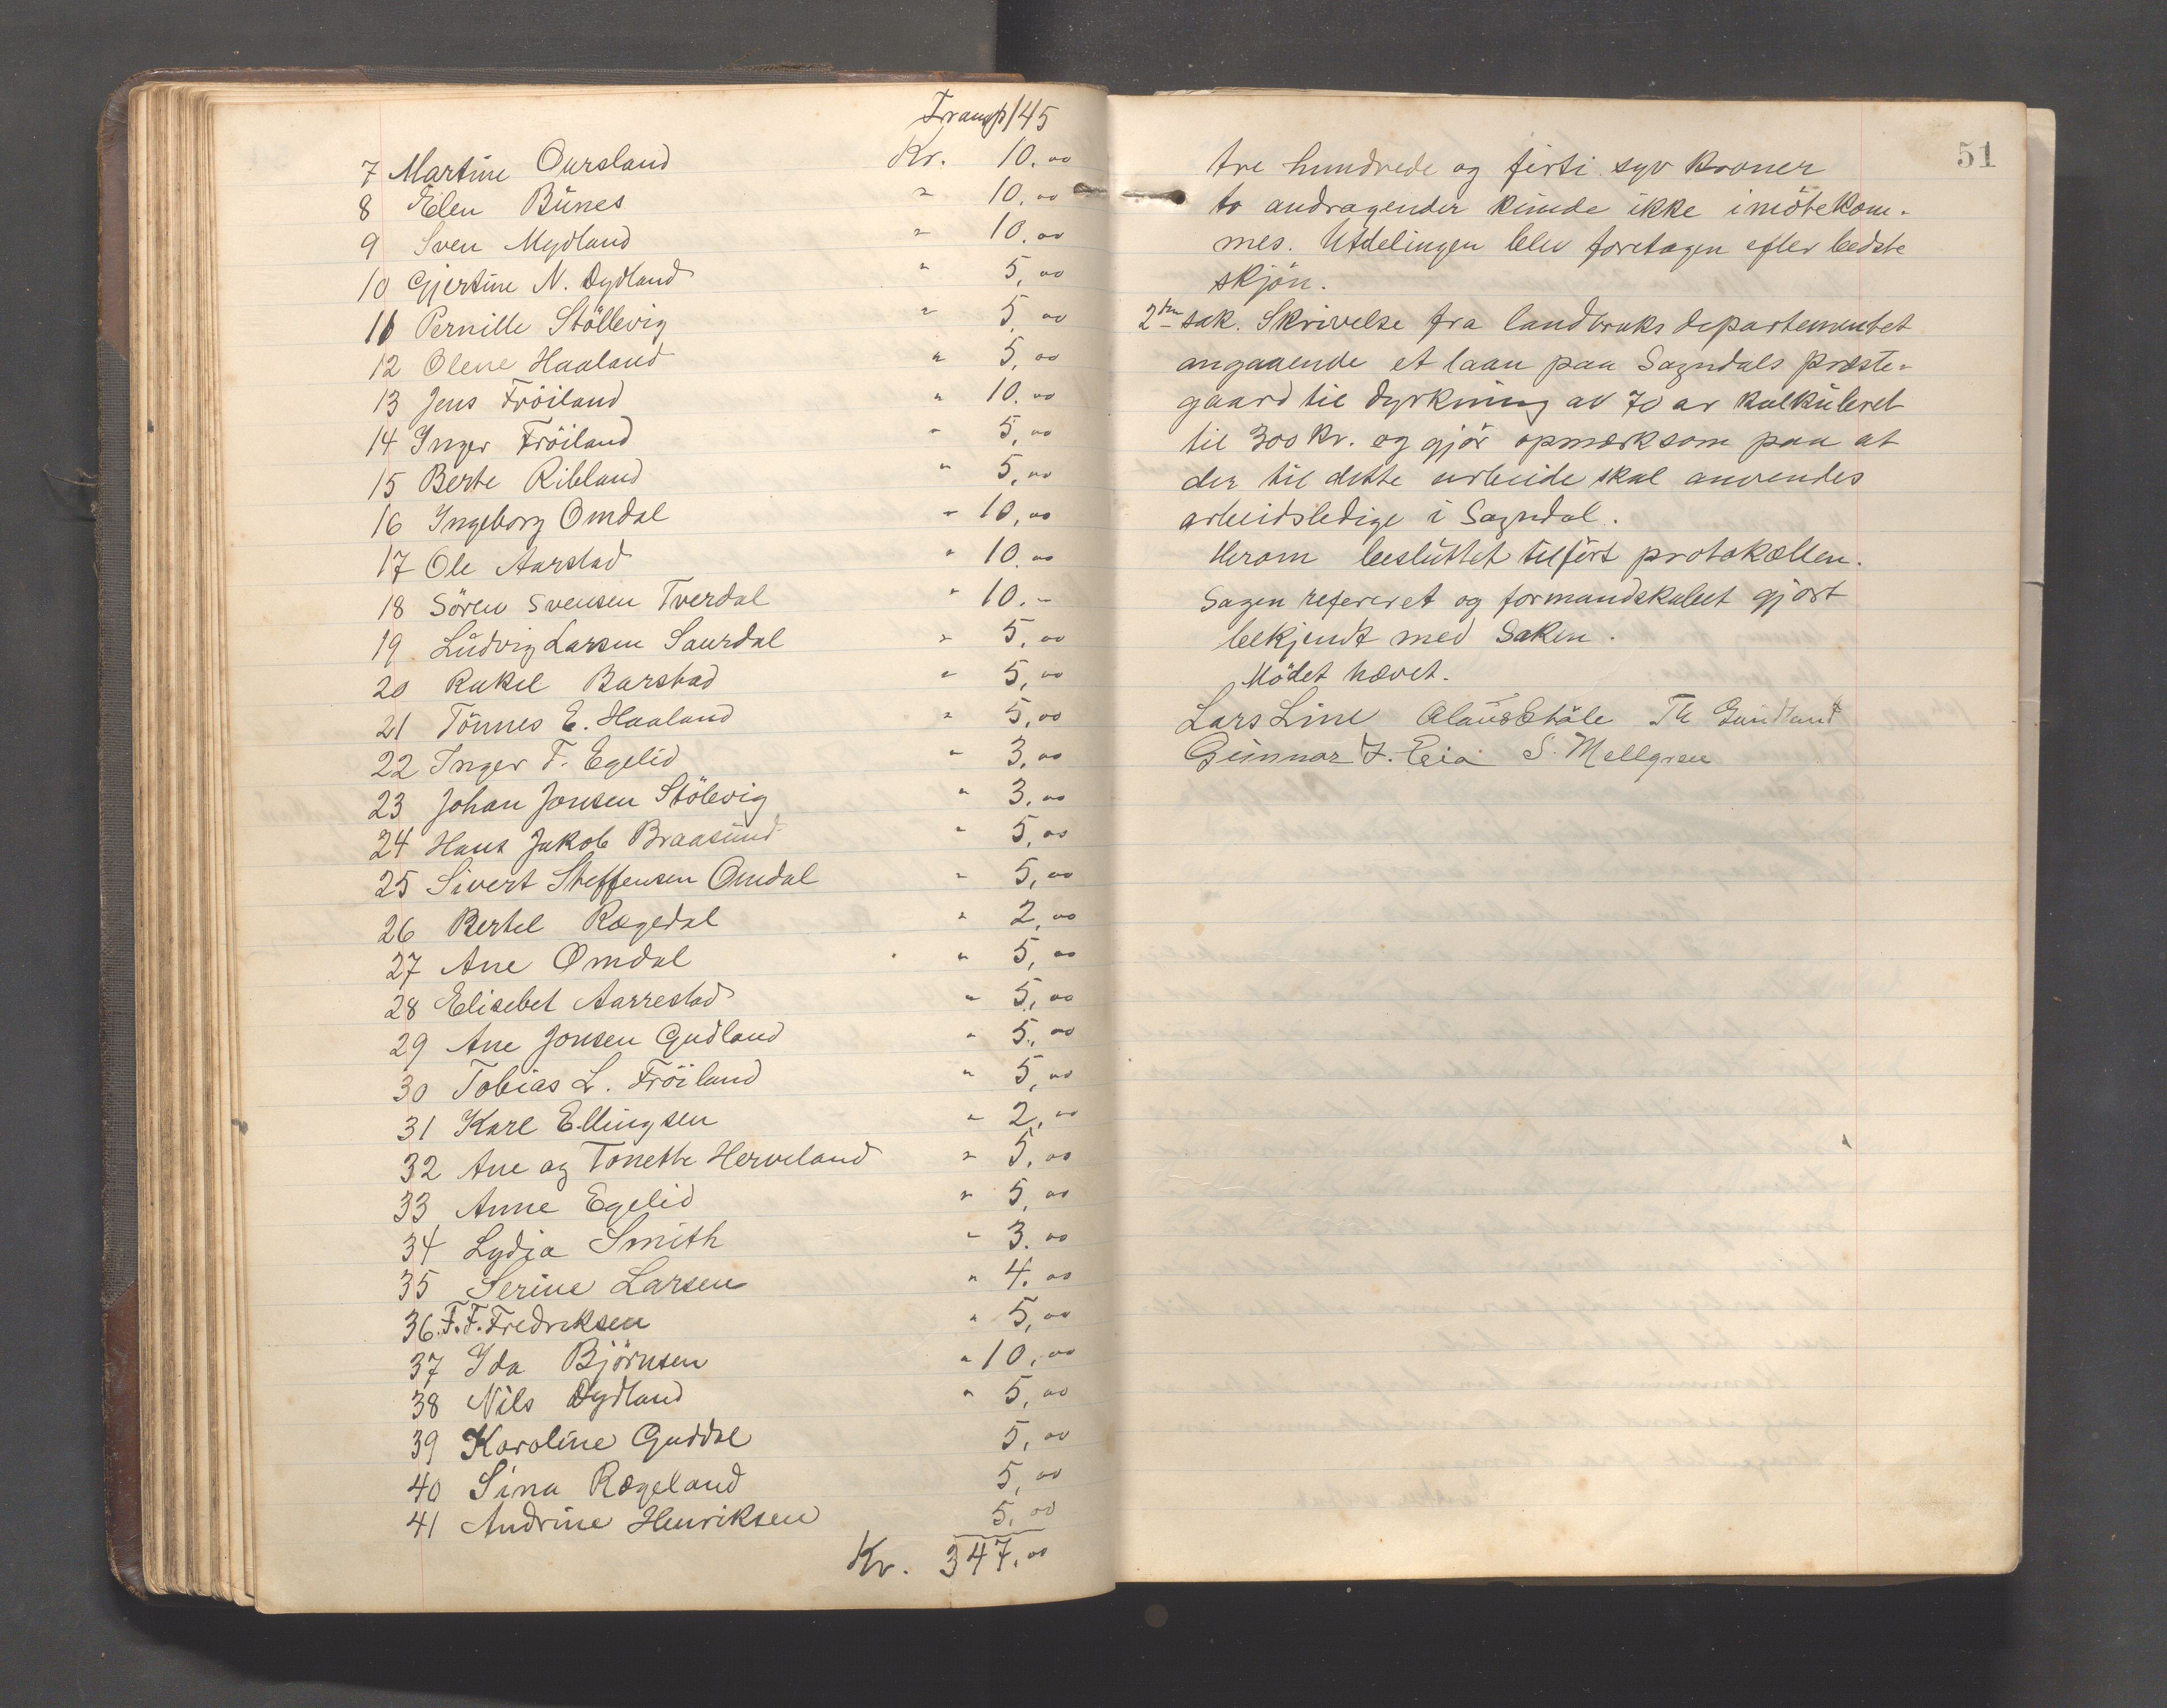 Transp 145
7 Martine Oursland Kr. 10.00
8 Elen Bünes " 10.00
9 Sven Mydland " 10.00
10 Gjertine N. Dydland " 5,00
11 Pernille Stöllevig " 5,00
12 Olene Haaland " 5,00
13 Jens Fröiland " 10.00
14 Inger Fröiland " 5,00
15 Berte Ribland " 5,00
16 Ingeborg Omdal " 10,00
17 Ole Aarstad " 10.00
18 Sören Svensen Tverdal " 10.-
19 Ludvig Larsen Saurdal " 5,00
20 Rakel Barstad " 5,00
21 Tönnes E. Haaland " 5,00
22 Inger T. Egelid " 3,00
23 Johan Jonsen Stölevig " 3,00
24 Hans Jakob Braasund " 5,00
25 Sivert Steffensen Omdal " 5,00
26 Bertel Rægedal " 2,00
27 Ane Omdal " 5,00
28 Elisebet Aarrestad " 5,00
29 Ane Jonsen Gudland " 5,00
30 Tobias L. Fröiland " 5,00
31 Karl Ellingsen " 2,00
32 Ane og Tonette Herveland " 5,00
33 Anne Egelid " 5,00
34 Lydia Smith " 3.00
35 Serine Larsen " 4.00
36. F. F. Fredreksen " 5,00
37 Ida Björnsen " 10,00
38 Nils Dydland " 5,00
39 Karoline Guddal 5,00
40 Sina Rægeland 5,00
41 Andrine Henriksen 5,00
Kr. 347,00
51
tre hundrede og firti syv kroner
to andragender kunde ikke imötekom-
mes. Utdelingen blev foretagen efter bedste
skjön.
2den sak. Skrivelse fra landbruks departementet
angaaende et laan paa Sogndals præste-
gaard til dyrkning av 70 ar kalkuleret
til 300 kr. og gjör opmerksom paa at
der til dette arbeide skal anvendes
arbeidsledige i Sogndal.
Herom besluttet tilfört protokollen.
Sagen refereret og formandskabet gjort
bekjendt med Saken.
Mödet hævet.
Lars Line Claus Ståle Th Gundland
Gunnar T. Eia S. Mellgren